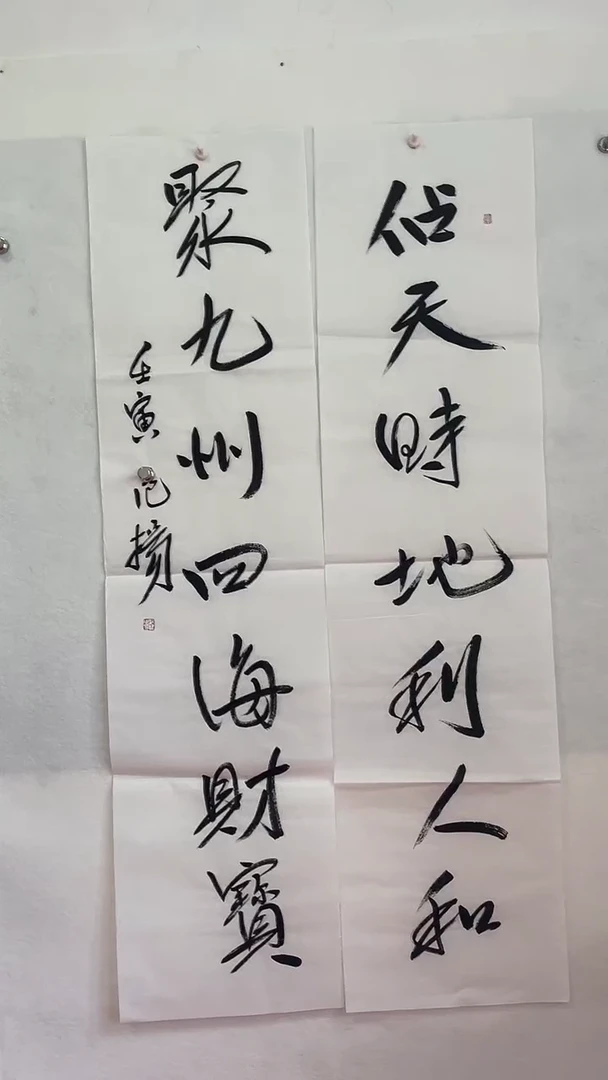 佔天時地利人和
聚九州四海財寳
壬寅